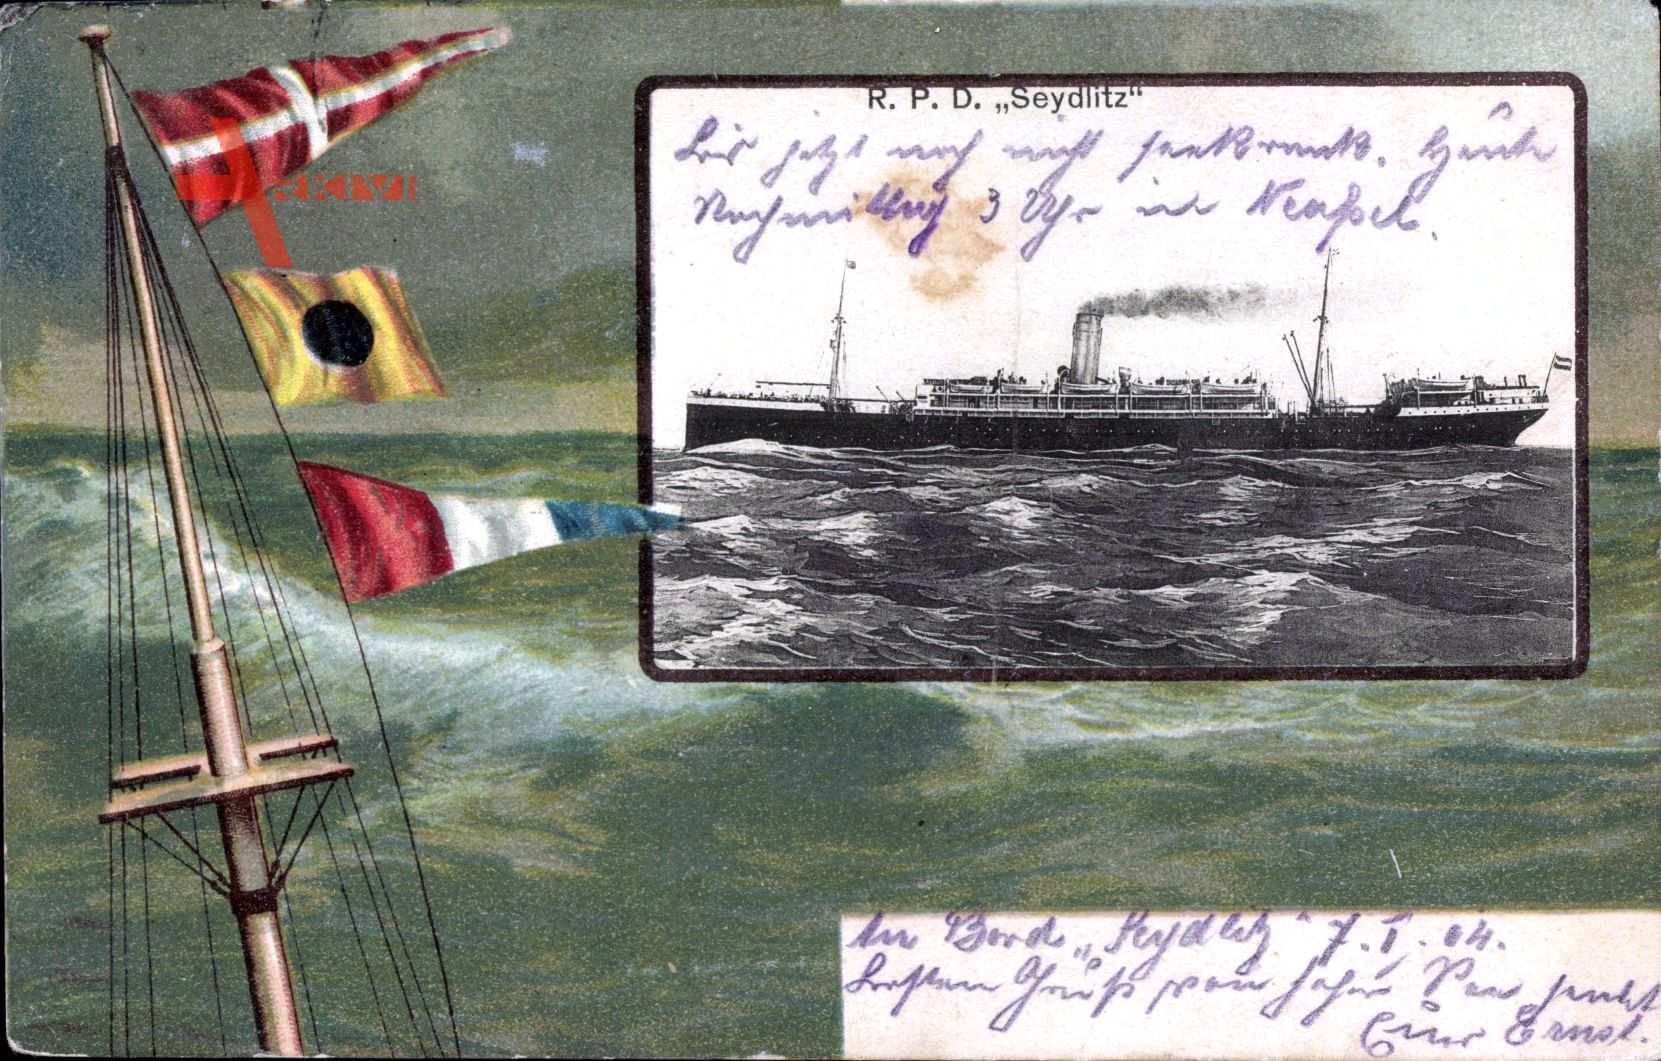 R. P. D. „Seydlitz“
Bis jetzt noch nicht seekrank. Heute
Nachmittag 3 Uhr in Neapel.
ARKIVI
An Bord „Seydlitz“ 7. I. 04.
Besten Gruß von hoher See sendet
Euer Ernst.